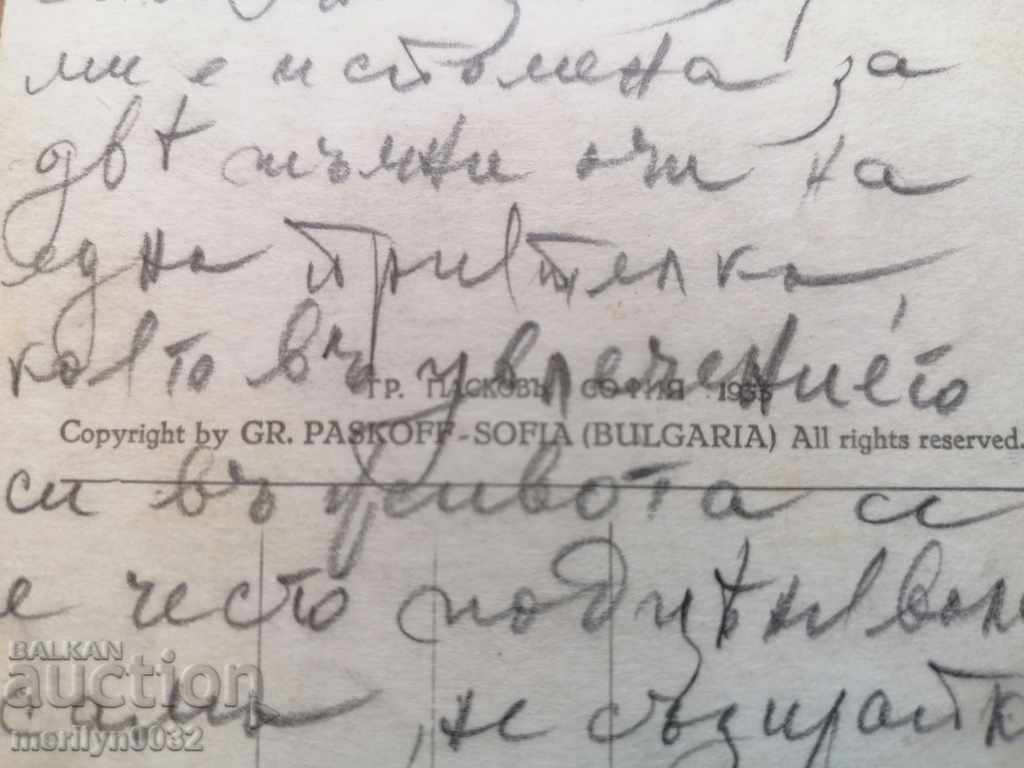 ми е
за
двѣ тъмни очи на
една приятелка
която въ увлечението
ГР. ПАСКОВЪ СОФИЯ 1933
Copyright by GR. PASKOFF-SOFIA (BULGARIA) All rights reserved.
си въ живота се
е често подценѣвала
BALKAN
auction
сама, не съзирайки
merilyn0032